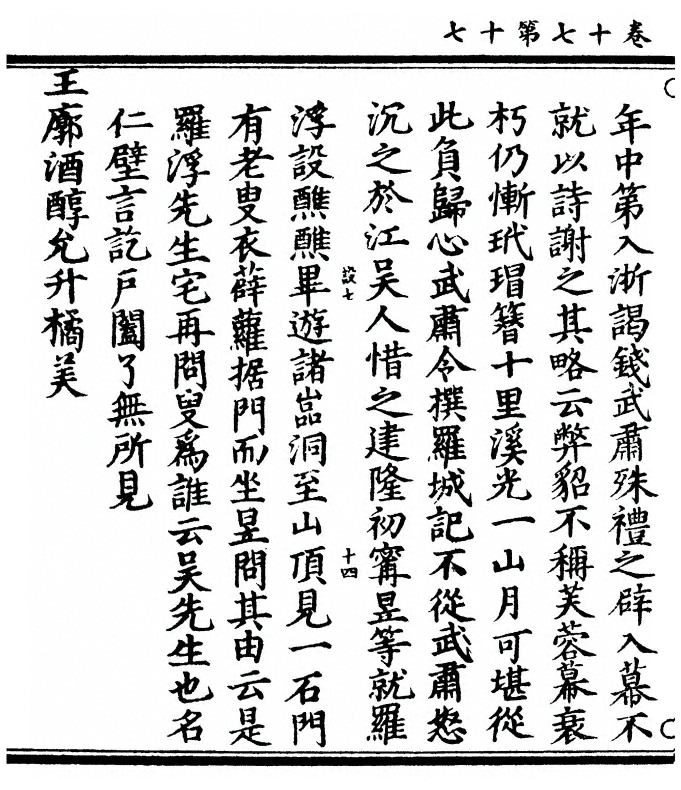 卷十七第十七
年中第入浙謁錢武肅殊禮之辟入幕不
就以詩謝之其略云弊貂不稱芙蓉幕衰
朽仍慚玳瑁簪十里溪光一山月可堪從
此負歸心武肅令撰羅城記不從武肅怒
沉之於江吳人惜之建隆初甯昱等就羅
設七
十四
浮設醮醮畢遊諸嵓洞至山頂見一石門
有老叟衣薜蘿据門而坐昱問其由云是
羅浮先生宅再問叟爲誰云吳先生也名
仁璧言訖戶闔了無所見
王廓酒醇允升橘美